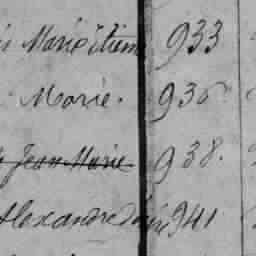 Marie Etienn 933
Marie. 936
Jean Marie 938.
Alexandre 941